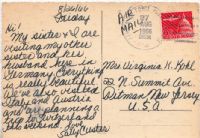 8/26/66
Friday
Hi!
My sister & I are
visiting my other
sister and her
husband here in
Germany. Everything
is really
We've also visited
Italy and Austria
and are planning a
trip to Switzerland
this weekend. Love
Sally
AIR
MAIL
27
AUG
1966
Mrs Virginia H. Kohl
22 N. Summit Ave
Pitman New Jersey
U.S.A.